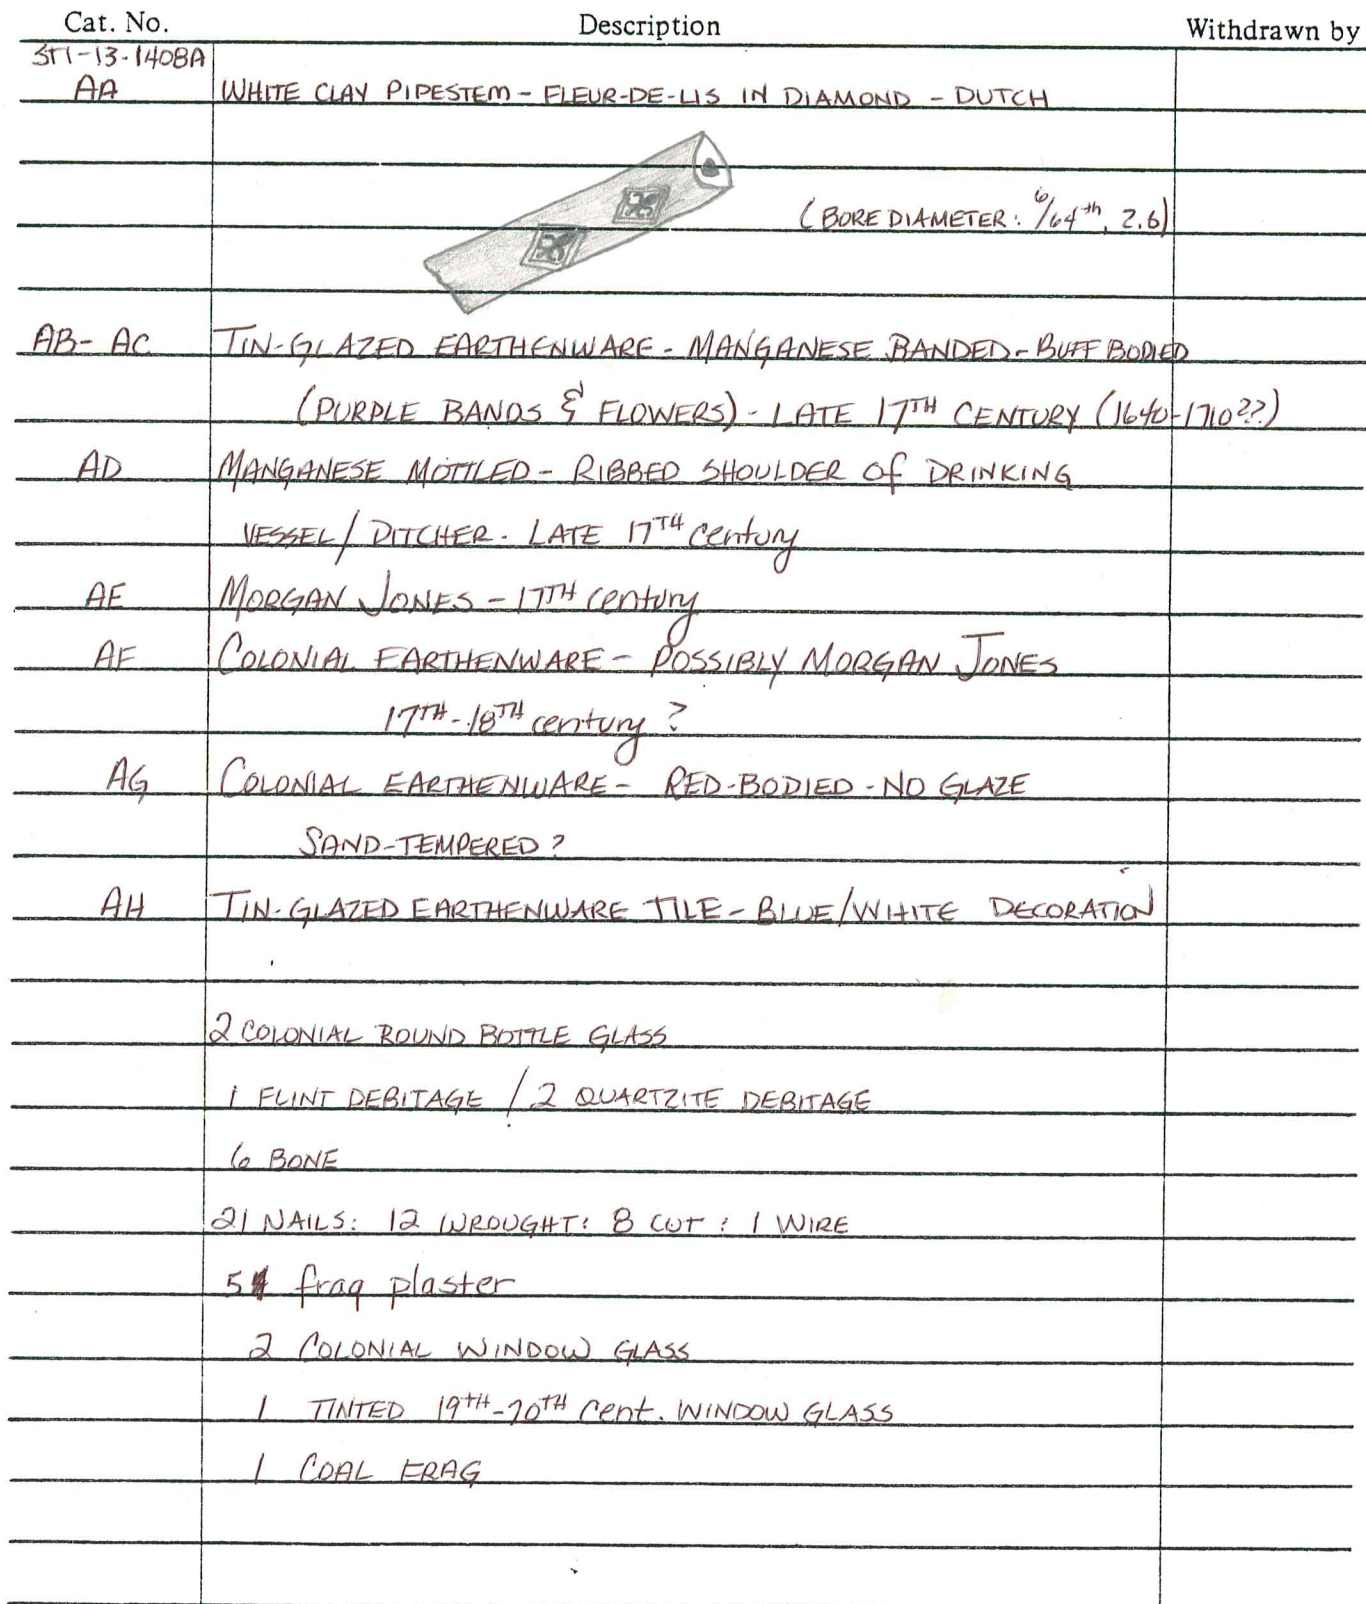 Cat. No. Description Withdrawn by
ST1-13-1408A
AA WHITE CLAY PIPESTEM - FLEUR-DE-LIS IN DIAMOND - DUTCH
(BORE DIAMETER: 6/64th, 2.6)
AB- AC TIN-GLAZED EARTHENWARE - MANGANESE BANDED - BUFF BODIED
(PURPLE BANDS & FLOWERS) - LATE 17TH CENTURY (1640-1710??)
AD MANGANESE MOTTLED - RIBBED SHOULDER OF DRINKING
VESSEL/PITCHER. LATE 17TH century
AE MORGAN JONES - 17TH century
AF COLONIAL EARTHENWARE - POSSIBLY MORGAN JONES
17TH-18TH century ?
AG COLONIAL EARTHENWARE - RED-BODIED - NO GLAZE
SAND-TEMPERED ?
AH TIN-GLAZED EARTHENWARE TILE - BLUE/WHITE DECORATION
2 COLONIAL ROUND BOTTLE GLASS
1 FLINT DEBITAGE / 2 QUARTZITE DEBITAGE
6 BONE
21 NAILS: 12 WROUGHT: 8 CUT: 1 WIRE
5 frag plaster
2 COLONIAL WINDOW GLASS
1 TINTED 19TH-20TH cent. WINDOW GLASS
1 COAL FRAG